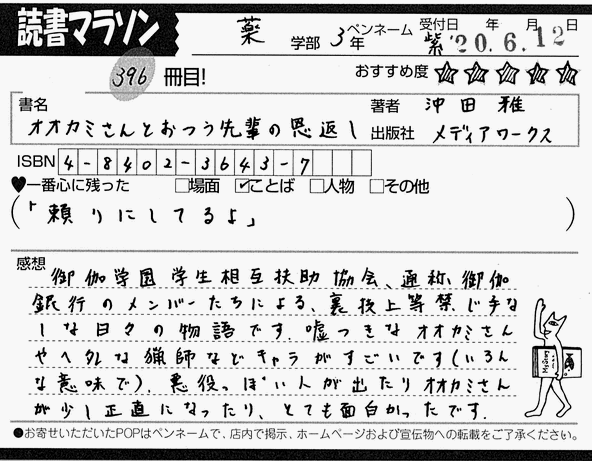 読書マラソン
薬 学部 3年 ペンネーム 紫 受付日 年 月 日
'20.6.12
396 冊目!
おすすめ度 ☆☆☆☆☆
書名 オオカミさんとおつう先輩の恩返し
著者 沖田 雅
出版社 メディアワークス
ISBN 4-8402-3643-7
♥一番心に残った □場面 ☑ことば □人物 □その他
(「頼りにしてるよ」)
感想
御伽学園学生相互扶助協会、通称御伽
銀行のメンバーたちによる、裏技上等禁じ手な
しな日々の物語です。嘘つきなオオカミさん
やヘタレな猟師などキャラがすごいです(いろん
な意味で)。悪役っぽい人が出たりオオカミさん
が少し正直になったり、とても面白かったです。
●お寄せいただいたPOPはペンネームで、店内で掲示、ホームページおよび宣伝物への転載をご了承ください。